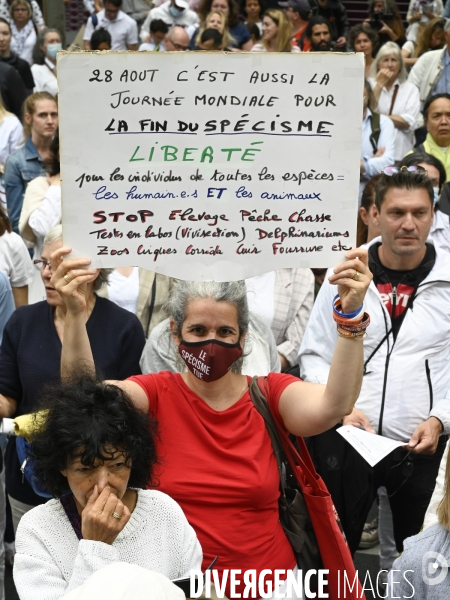 28 AOUT C'EST AUSSI LA
JOURNÉE MONDIALE POUR
LA FIN DU SPÉCISME
LIBERTÉ
pour les individus de toutes les espèces =
les humain.e.s ET les animaux
STOP Elevage Pêche Chasse
Tests en labos (Vivisection) Delphinariums
Zoos Cirques Corrida Cuir Fourrure etc
LE SPÉCISME
TUE
DIVERGENCE IMAGES